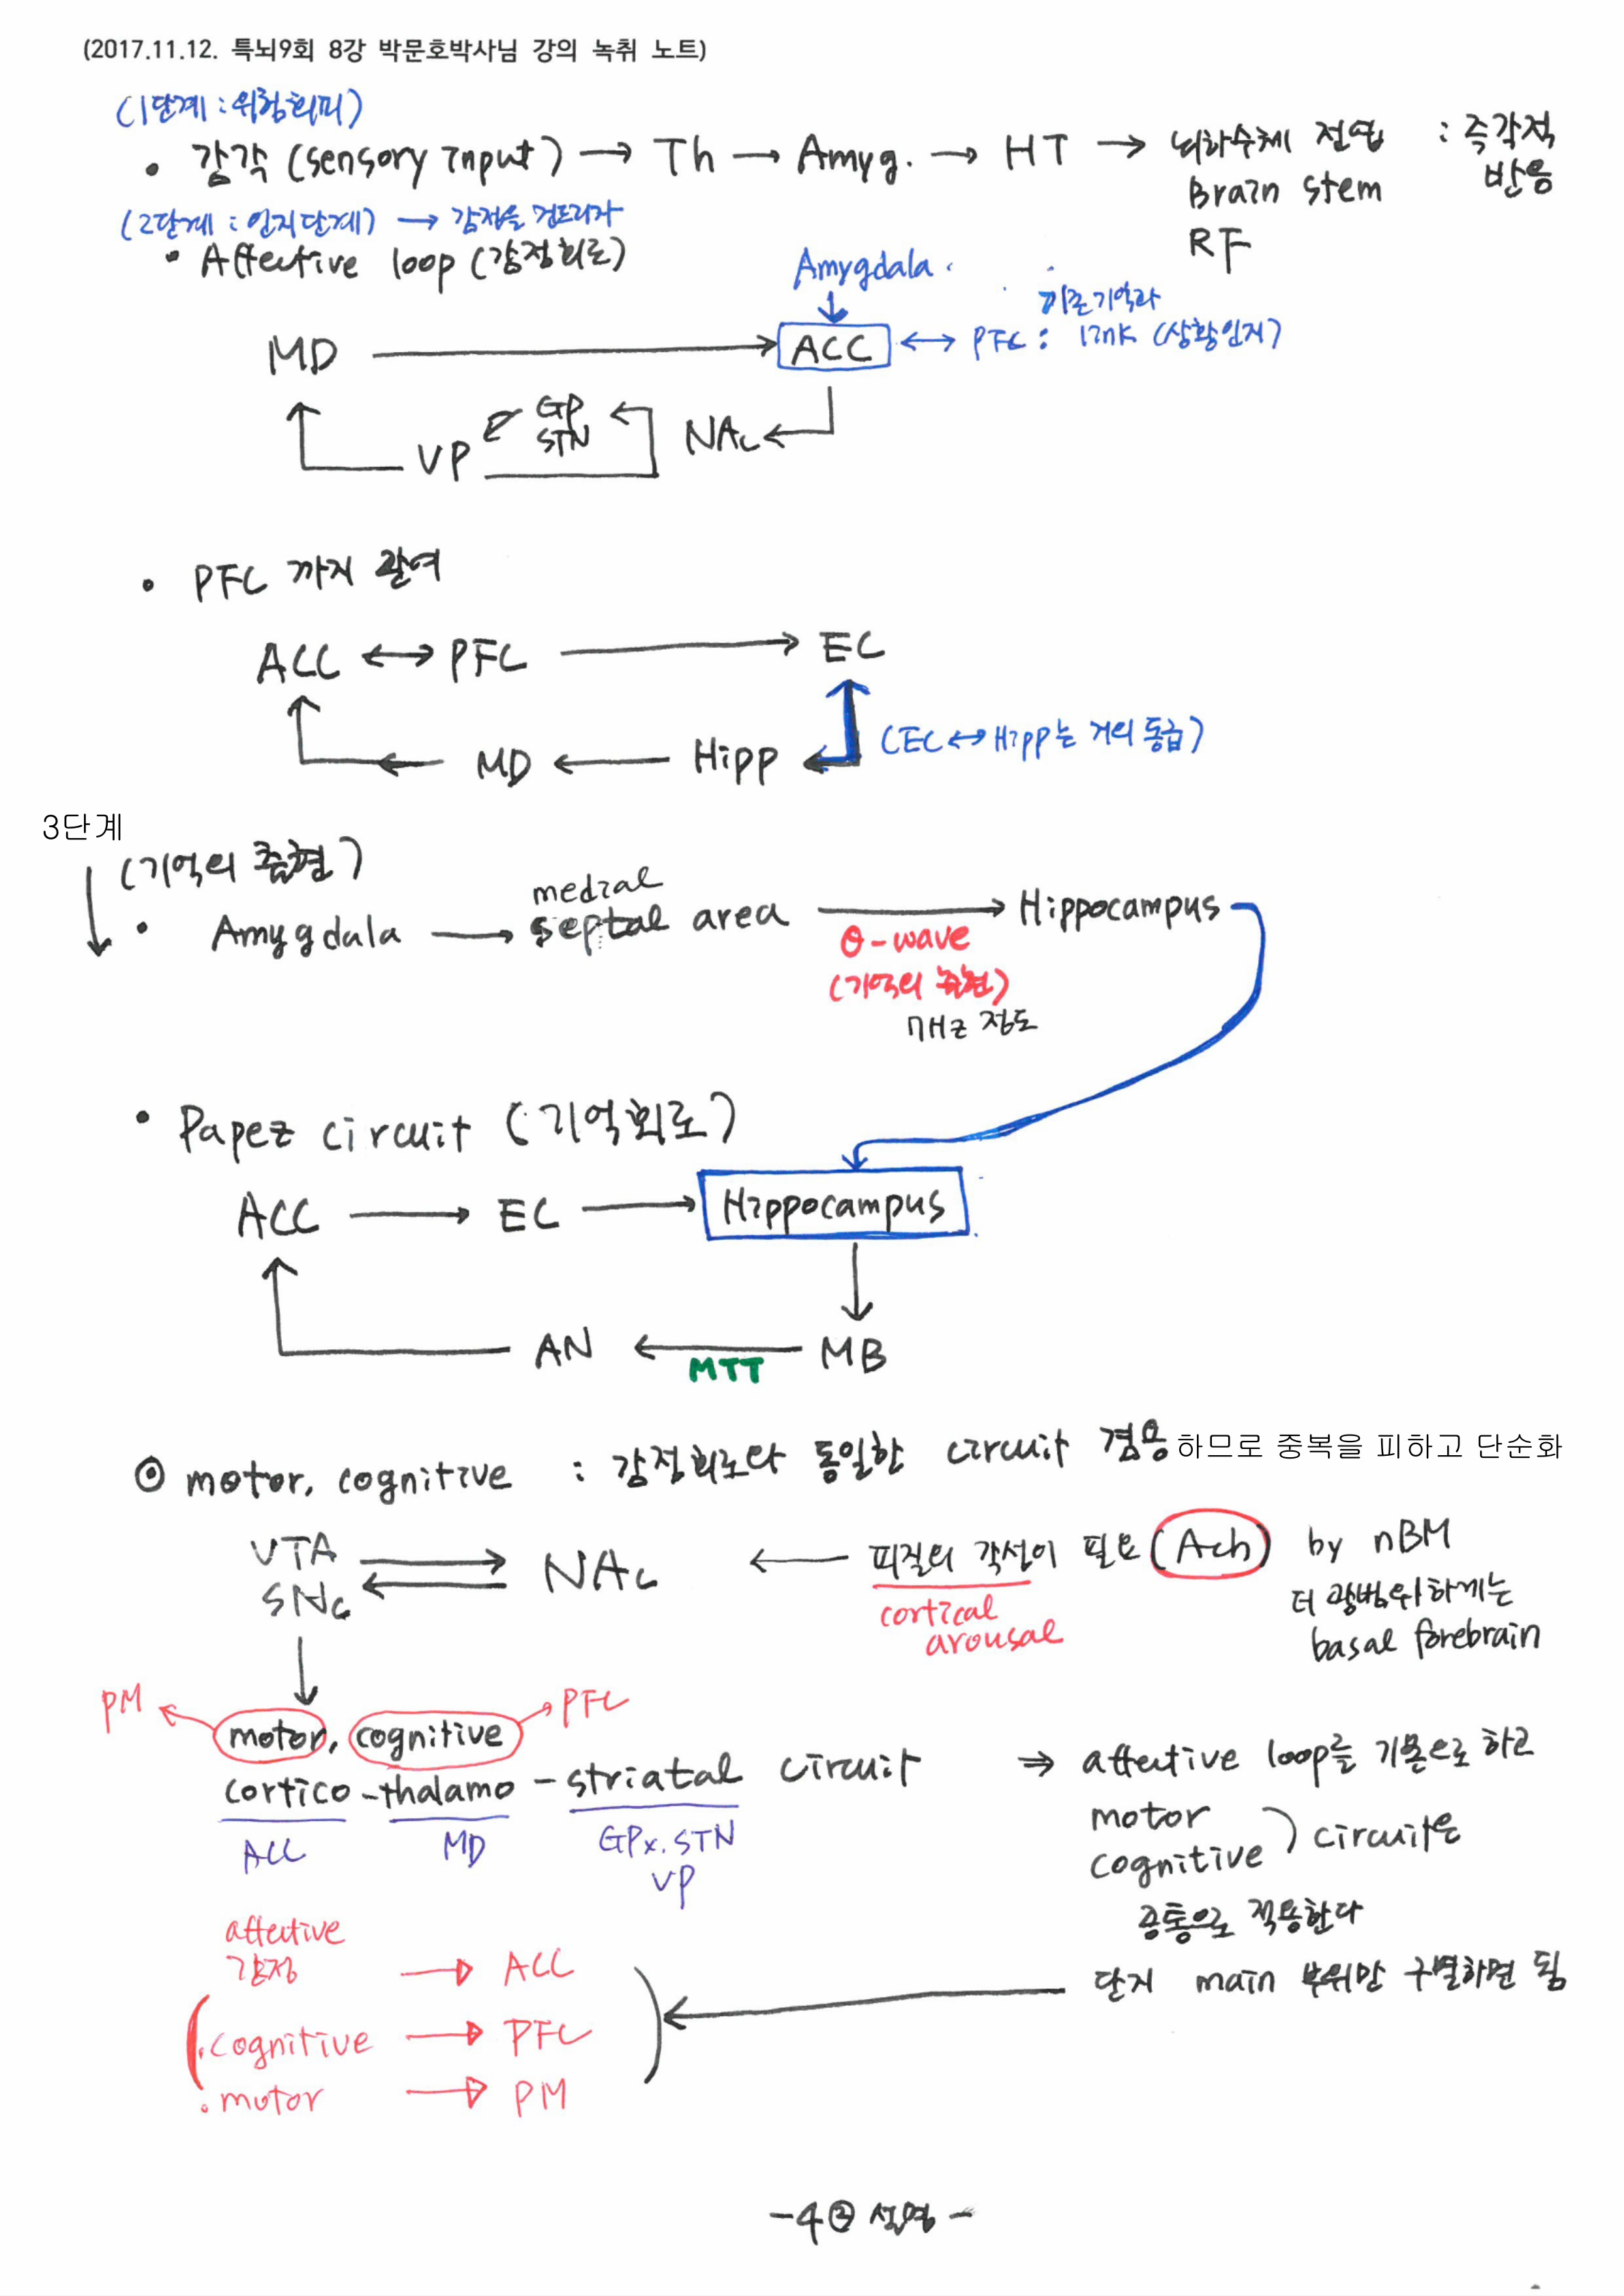 (2017.11.12. 특뇌9회 8강 박문호박사님 강의 녹취 노트)
(1단계 : 위험회피)
• 감각 (sensory input) → Th → Amyg. → HT → 뇌하수체 전엽 : 즉각적 반응
Brain stem
RF
(2단계 : 인지단계) → 감정을 건드리자
• Affective loop (감정회로)
Amygdala
기존기억과
MD → ACC ↔ PFC : link (상황인지)
GP
STN
VP NAc
• PFC 까지 관여
ACC ↔ PFC → EC
(EC ↔ Hipp는 거의 동급)
MD ← Hipp
3단계
(기억의 출현)
medial
• Amygdala → septal area → Hippocampus
θ-wave
(기억의 출현)
7Hz 정도
• Papez circuit (기억회로)
ACC → EC → Hippocampus
AN ← MB
MTT
◎ motor, cognitive : 감정회로와 동일한 circuit 겸용하므로 중복을 피하고 단순화
VTA
SNc
NAc ← 피질의 각성이 필요 (Ach) by nBM
cortical
arousal
더 광범위하게는
basal forebrain
PM ← motor, cognitive → PFC
cortico - thalamo - striatal circuit ⇒ affective loop를 기본으로 하고
ACC MD GPx. STN
VP
motor
cognitive ) circuit은
공통으로 적용한다
단지 main 부위만 구별하면 됨
affective
감정 → ACC
. cognitive → PFC
. motor → PM
-4② 설명-